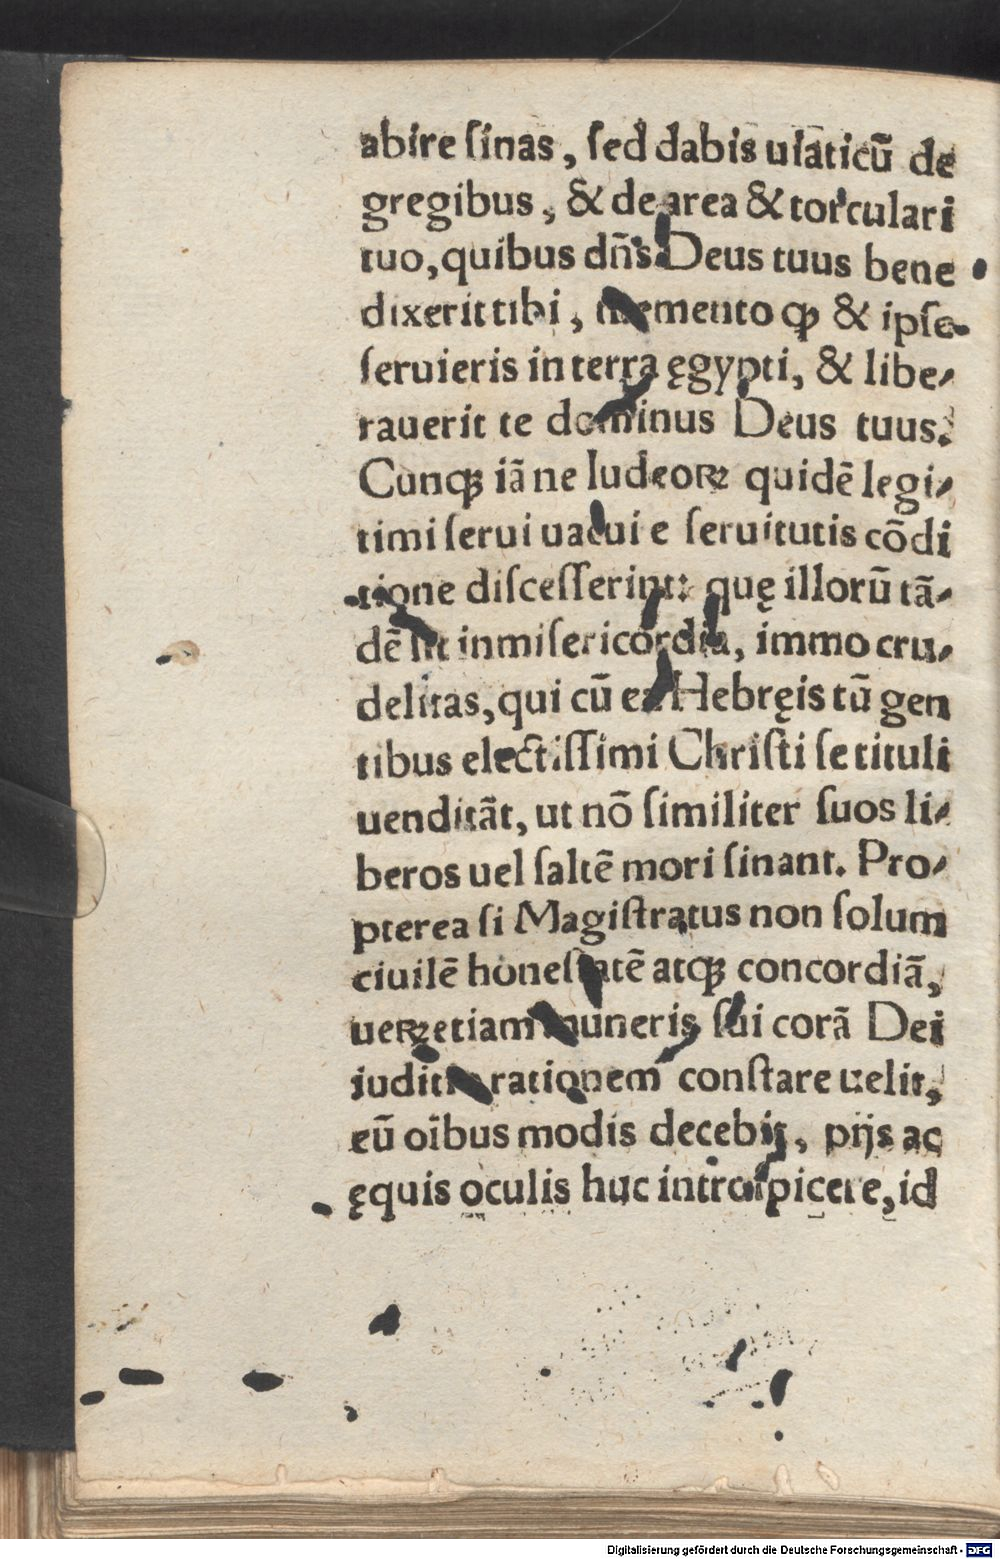 abire ſinas, ſed dabis uiaticū de
gregibus, & de area & torculari
tuo, quibus dn̄s Deus tuus bene
dixerit tibi, memento ꝙ & ipſe
ſeruieris in terra ęgypti, & libe⸗
rauerit te dominus Deus tuus.
Cunqꝫ iā ne Iudeoꝝ quidē legi⸗
timi ſerui uacui e ſeruitutis cōdi
tione diſceſſerint: quę illorū tā⸗
dē ſit inmiſericordia, immo cru⸗
delitas, qui cū ex Hebręis tū gen
tibus electiſſimi Chriſti ſe tituli
uenditāt, ut nō ſimiliter ſuos li⸗
beros uel ſaltē mori ſinant. Pro⸗
pterea ſi Magiſtratus non ſolum
ciuilē honeſtatē atqꝫ concordiā,
ueꝝ etiam muneris ſui corā Dei
iuditio rationem conſtare uelit,
eū oībus modis decebit, pijs ac
ęquis oculis huc introſpicere, id
Digitalisierung gefördert durch die Deutsche Forschungsgemeinschaft - DFG